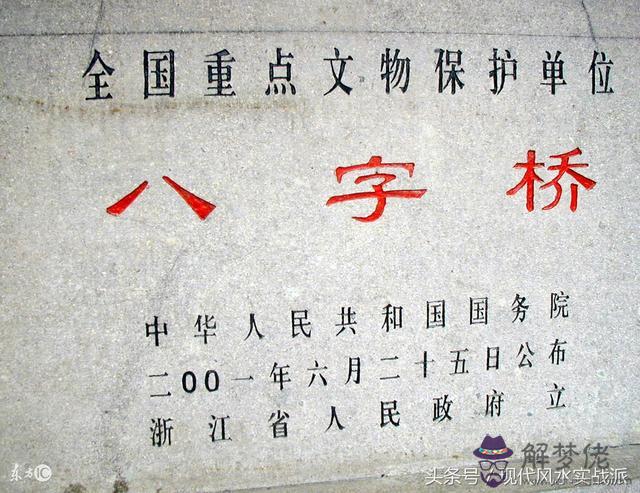 全国重点文物保护单位
八字桥
中华人民共和国国务院
二00一年六月二十五日公布
浙江省人民政府立
解梦佬
头条号/现代风水实战派
东方IC